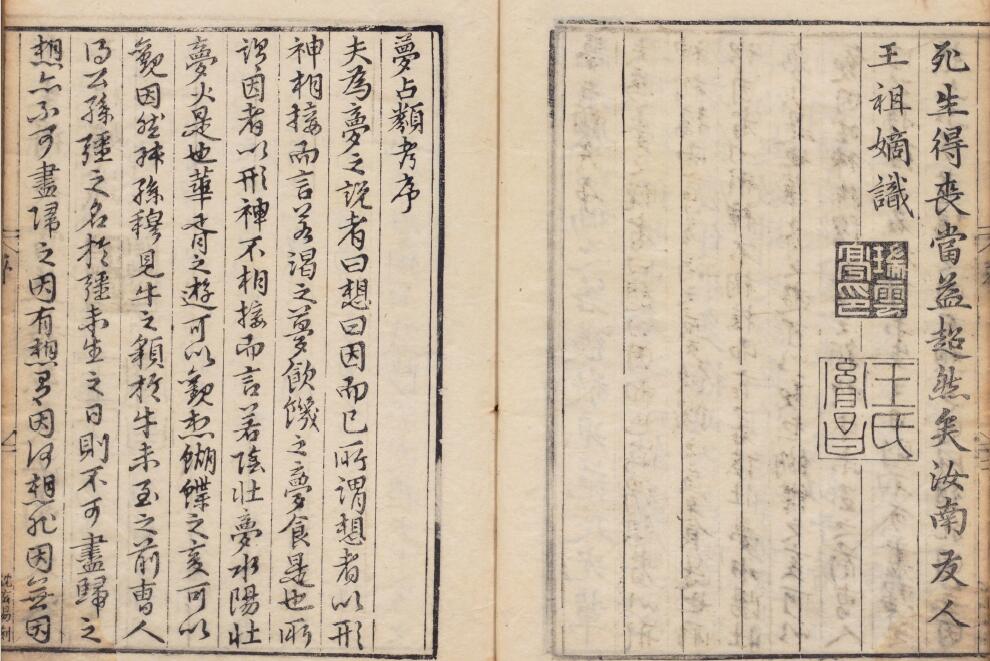 死生得喪當益超然矣汝南友人
王祖嫡識
王氏胤昌
夢占類考序
夫為夢之説者曰想曰因而已所謂想者以形
神相接而言若渴之夢飲饑之夢食是也所
謂因者以形神不相接而言若陰壯夢水陽壯
夢火是也華胥之遊可以觀想蝴蝶之變可以
觀因然叔孫穆見牛之貌於牛未至之前曹人
得公孫彊之名於彊未生之日則不可盡歸之
想亦不可盡歸之因有想有因何想非因無因